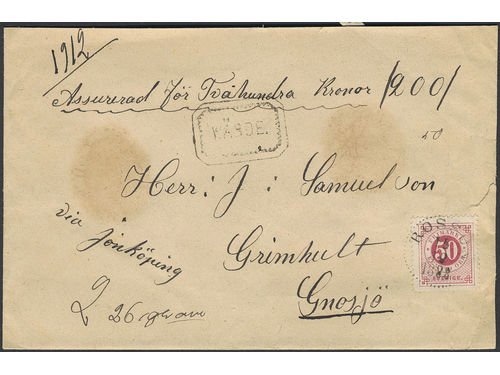 1912
Assurerad för Tvåhundra Kronor /200/
VÄRDE.
50
Herr: J: Samuelson
via Jönköping
Grimhult
Gnosjö
2 26 gram
FRIMÄRKE
50
SVERIGE.